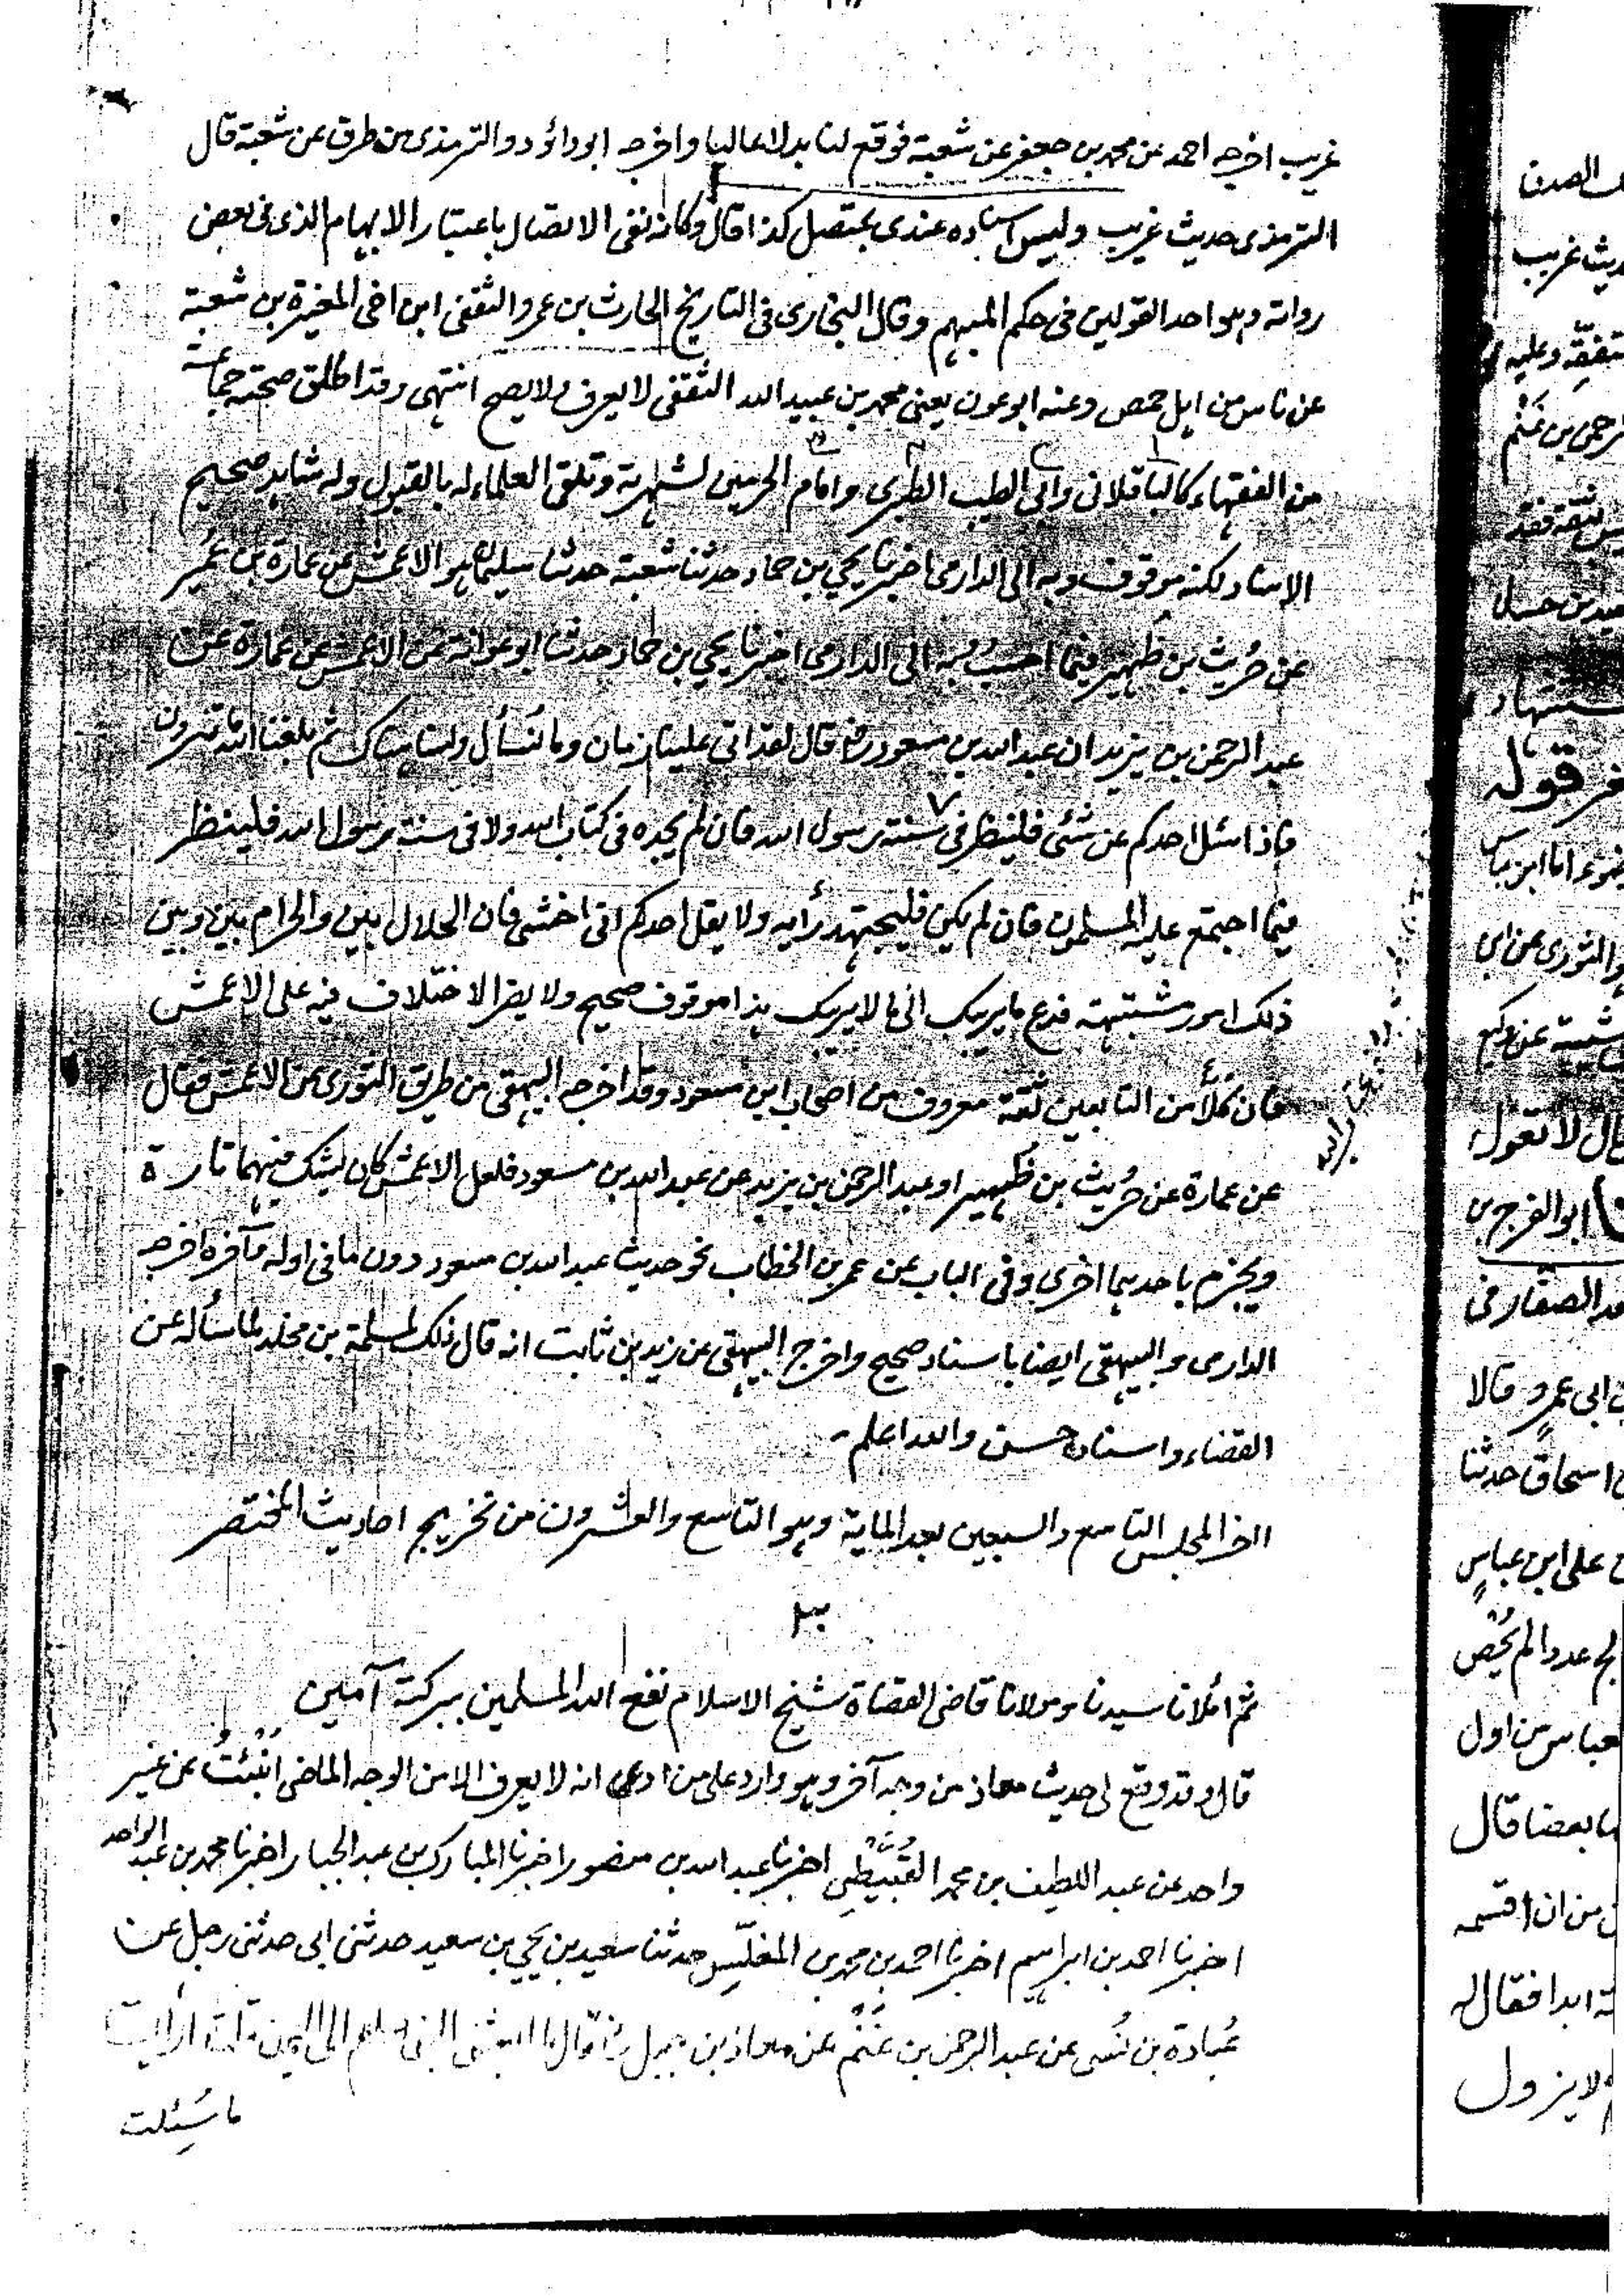 غريب اخرجه احمد عن محمد بن جعفر عن شعبة فوقع لنا بدلا عاليا واخرجه ابو داؤد والترمذى من طرق عن شعبة قال
الترمذى حديث غريب وليس اسناده عندى بمتصل كذا قال وكانه نفى الاتصال باعتبار الابهام الذى فى بعض
رواته وهو احد القولين فى حكم المبهم وقال البخارى فى التاريخ الحارث بن عمرو الثقفى ابن اخى المغيرة بن شعبة
عن ناس من اهل حمص وعنه ابو عون يعنى محمد بن عبيد الله الثقفى لا يعرف ولا يصح انتهى وقد اطلق صحته جماعة
من الفقهاء كالباقلانى وابى الطيب الطبرى وامام الحرمين لشهرته وتلقى العلماء له بالقبول وله شاهد صحيح
الاسناد لكنه موقوف وبه الى الدارمى اخبرنا يحيى بن حماد حدثنا شعبة حدثنا سليمان هو الاعمش عن عمارة بن عُمير
عن حُريث بن ظُهير فيما احسبُ وبه الى الدارمى اخبرنا يحيى بن حماد حدثنا ابو عوانة عن الاعمش عن عمارة عن
عبد الرحمن بن يزيد ان عبد الله بن مسعود رض قال لقد اتى علينا زمان وما نُسأل ولسنا هناك ثم بلغنا الله ما ترون
فاذا سئل احدكم عن شئى فلينظر فى سنة رسول الله فان لم يجده فى كتاب الله ولا فى سنة رسول الله فلينظر
فيما اجتمع عليه المسلمون فان لم يكن فليجتهد رأيه ولا يقل احدكم انى اخشى فان الحلال بين والحرام بين وبين
ذلك امور مشتبهة فدع ما يريبك الى ما لا يريبك هذا موقوف صحيح ولا يضر الاختلاف فيه على الاعمش
فان كلاً من التابعين ثقة معروف من اصحاب ابن مسعود وقد اخرجه البيهقى من طريق الثورى عن الاعمش فقال
عن عمارة عن حُريث بن ظُهير او عبد الرحمن بن يزيد عن عبد الله بن مسعود فلعل الاعمش كان يشك فيهما تارة
ويجزم باحدهما اخرى وفى الباب عن عمر بن الخطاب نحو حديث عبد الله بن مسعود دون ما فى اوله وآخره اخرجه
الدارمى والبيهقى ايضا باسناد صحيح واخرج البيهقى عن زيد بن ثابت انه قال ذلك لمسلمة بن مخلد لما سأله عن
القضاء واسناده حسن والله اعلم
اخر المجلس التاسع والسبعين بعد المایة وهو التاسع والعشرون من تخريج احاديث المختصر
ثم املانا سيدنا ومولانا قاضى القضاة شيخ الاسلام نفع الله المسلمين ببركته آمين
قال وقد وقع لى حديث معاذ من وجه آخر وهو وارد على من ادعى انه لا يعرف الا من الوجه الماضى اُنْبِئتُ عن غير
واحد عن عبد اللطيف بن محمد القُبَّيْطِى اخبرنا عبد الله بن منصور اخبرنا المبارك بن عبد الجبار اخبرنا محمد بن عبد الواحد
اخبرنا احمد بن ابراهيم اخبرنا احمد بن محمد بن المغلّس حدثنا سعيد بن يحيى بن سعيد حدثنى ابى حدثنى رجل عن
عُبادة بن نُسَى عن عبد الرحمن بن غَنْم عن معاذ بن جبل رض قال لما بعثنى النبى صلعم الى اليمن قلت ارأيت
ما سُئلت
ريث غريب
غر قوله
والثورى عن ابى
قال لا تقول
ابو الفرج بن
ابى عمرو قالا
اسحاق حدثنا
على ابن عباس
عددا لم يُحْصِ
عباس من اول
بعضا قال
من ان اقسمه
ابدا فقال له
لا يزول